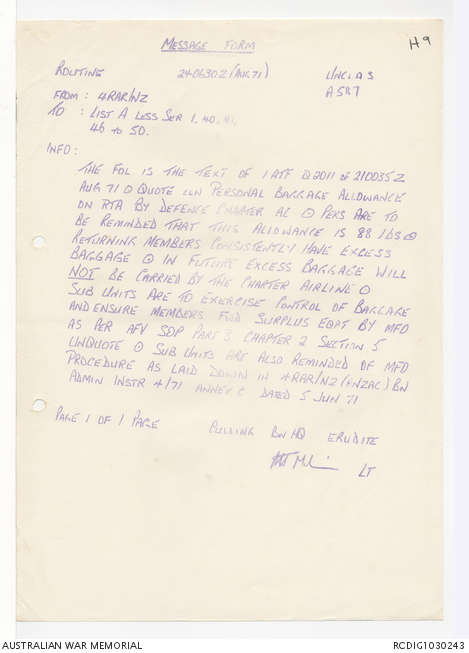 MESSAGE FORM
H9
ROUTINE 240630Z (AUG 71) UNCLAS
FROM: 4RAR/NZ A587
TO: LIST A LESS SER 1. 40. 41.
46 TO 50.
INFO:
THE FOL IS THE TEXT OF 1 ATF Q2011 OF 210035Z
AUG 71 ⊙ QUOTE CLN PERSONAL BAGGAGE ALLOWANCE
ON RTA BY DEFENCE CHARTER AC ⊙ PERS ARE TO
BE REMINDED THAT THIS ALLOWANCE IS 88 LBS ⊙
RETURNING MEMBERS CONSISTENTLY HAVE EXCESS
BAGGAGE ⊙ IN FUTURE EXCESS BAGGAGE WILL
NOT BE CARRIED BY THE CHARTER AIRLINE ⊙
SUB UNITS ARE TO EXERCISE CONTROL OF BAGGAGE
AND ENSURE MEMBERS FWD SURPLUS EQPT BY MFO
AS PER AFV SOP PART 3 CHAPTER 2 SECTION 5
UNQUOTE ⊙ SUB UNITS ARE ALSO REMINDED OF MFO
PROCEDURE AS LAID DOWN IN 4RAR/NZ (ANZAC) BN
ADMIN INSTR 4/71 ANNEX C DATED 5 JUN 71
PAGE 1 OF 1 PAGE BN HQ ERUDITE
LT
AUSTRALIAN WAR MEMORIAL RCDIG1030243